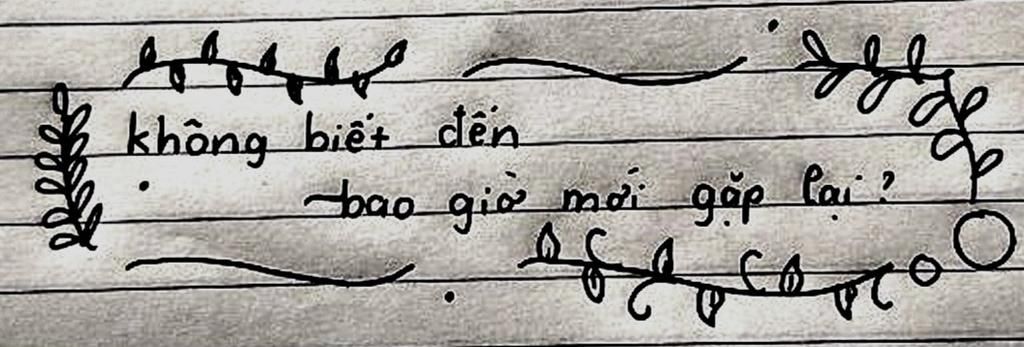 không biết đến
bao giờ mới gặp lại?